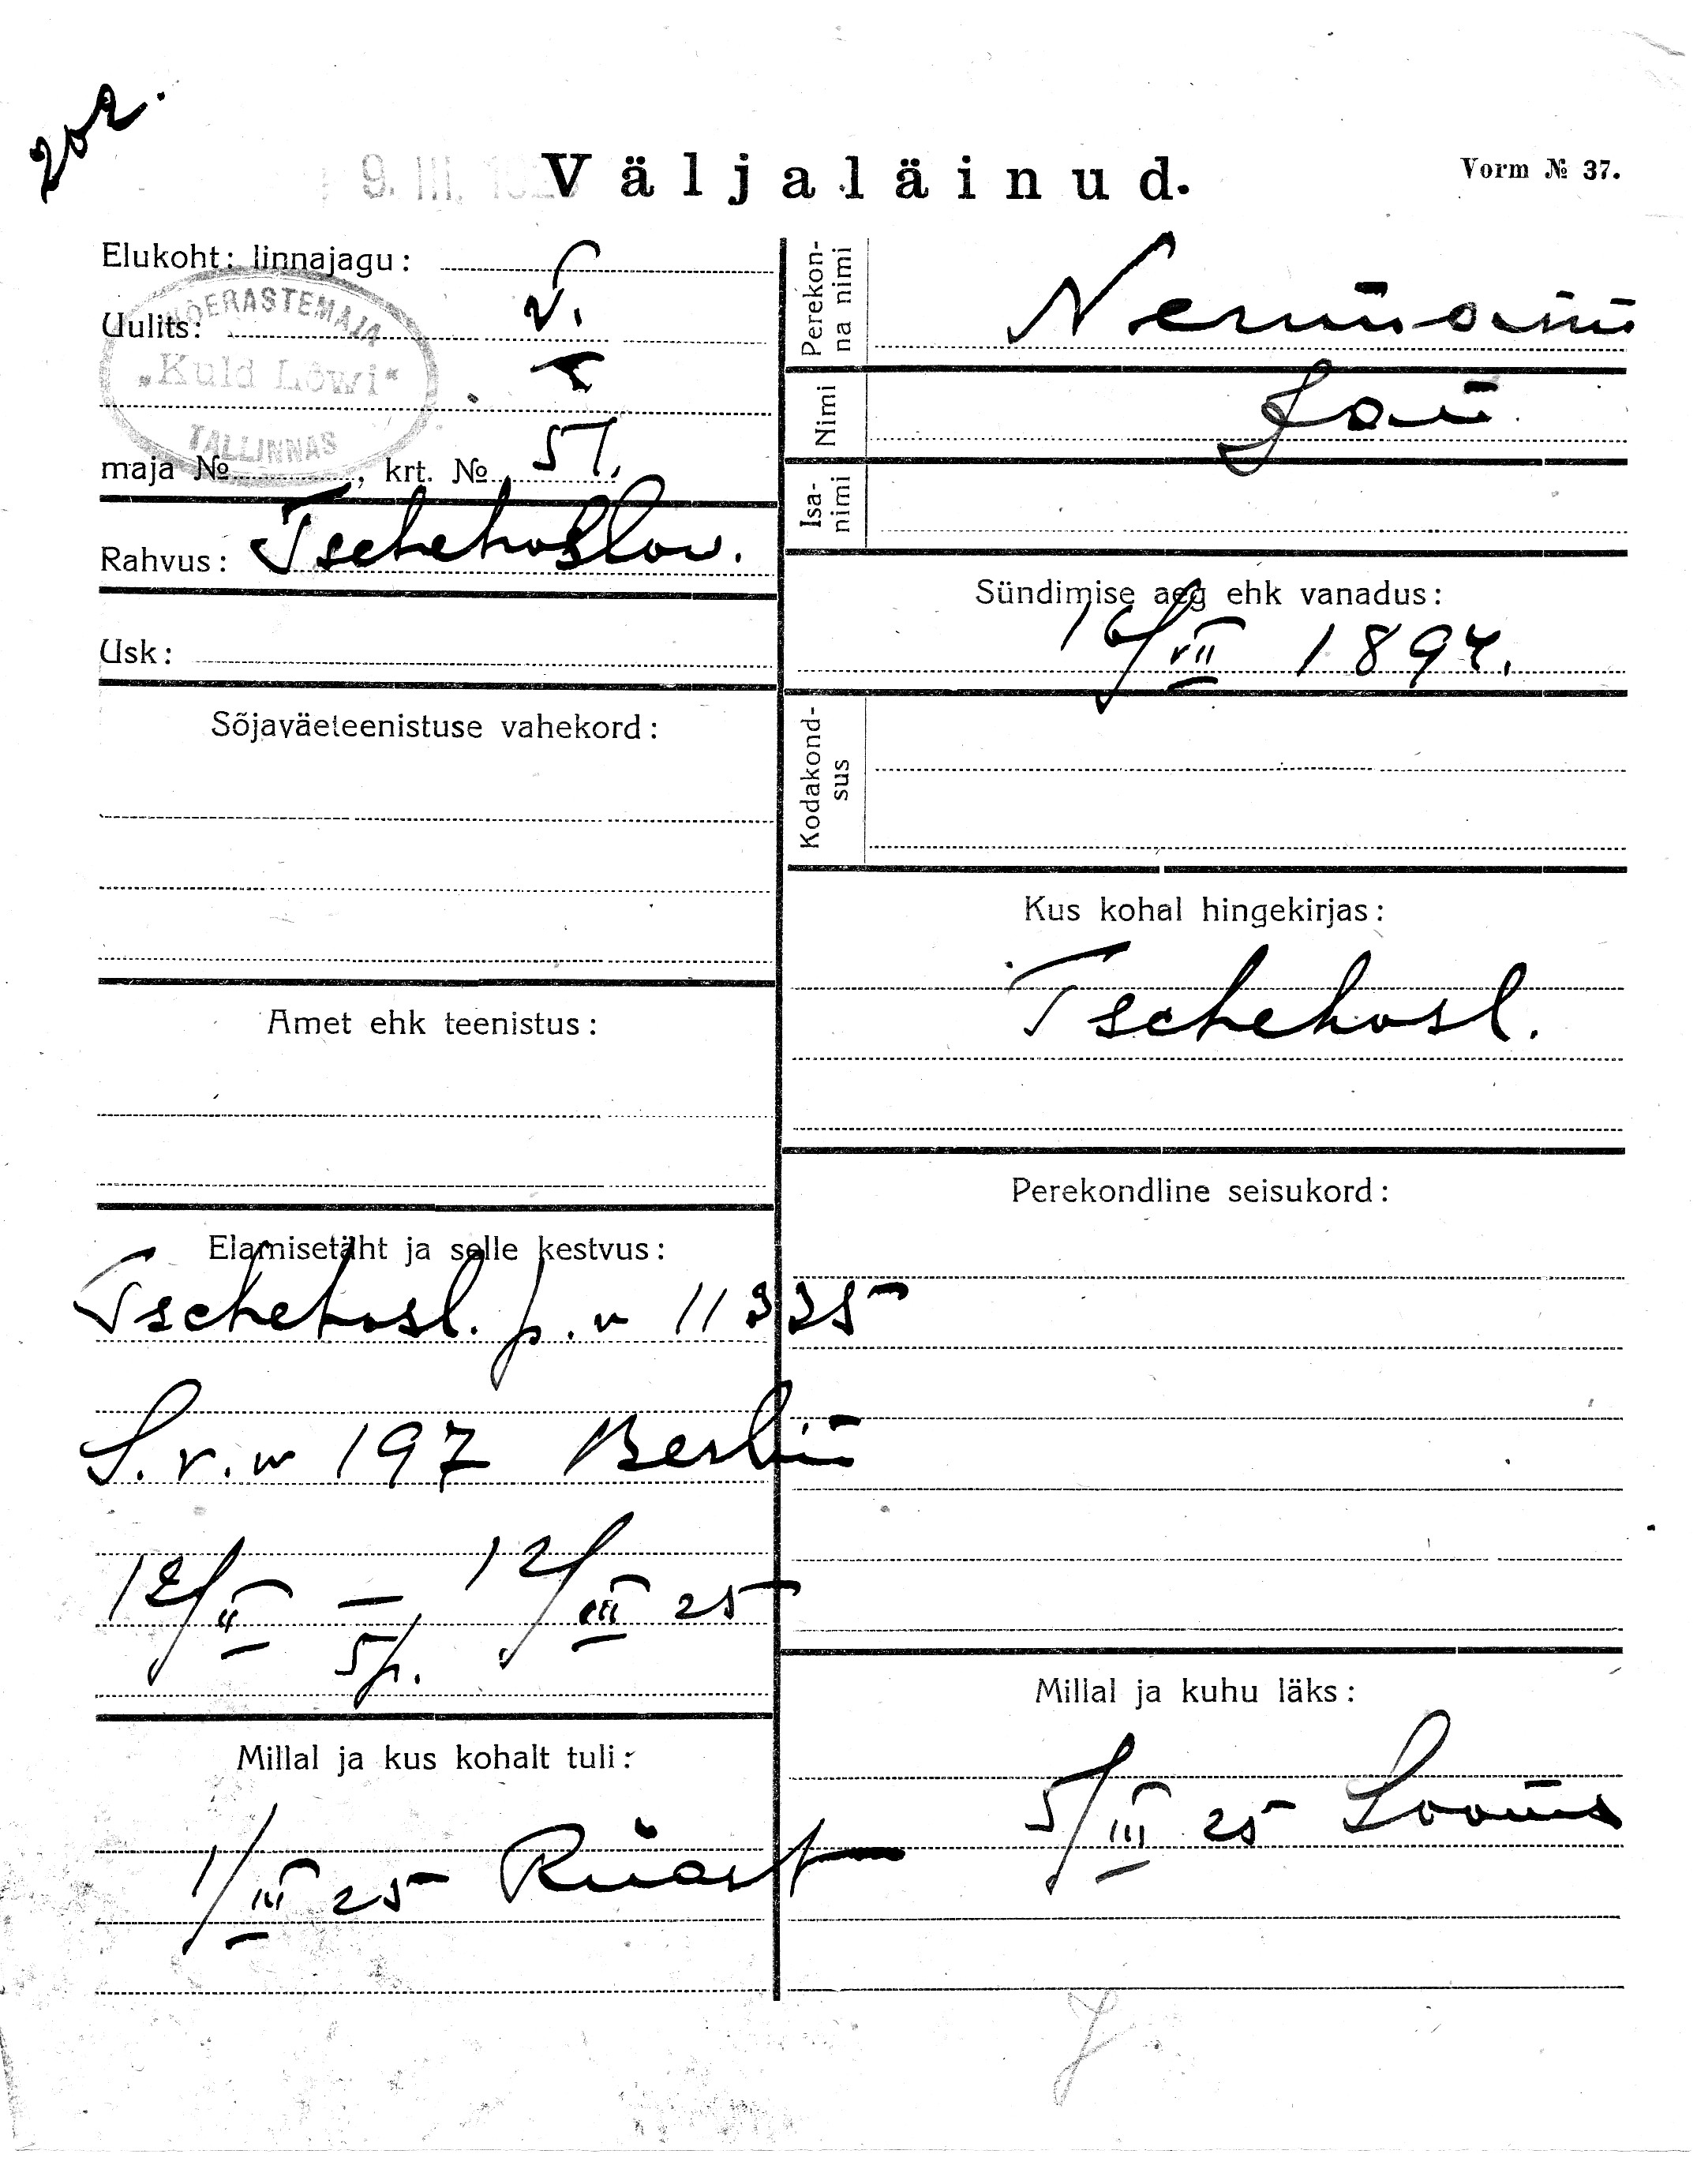 202.
9. III. 192
Väljaläinud.
Vorm № 37.
Elukoht: linnajagu:
V.
Uulits:
VÕERASTEMAJA
„Kuld Lõwi“
TALLINNAS
maja № , krt. № 51.
Rahvus: Tschehoslov.
Usk:
Sõjaväeteenistuse vahekord:
Amet ehk teenistus:
Elamisetäht ja selle kestvus:
Tschehosl. p. n 11335
S. v. n 197 Berlin
12/II — 12/III 25
5 p.
Millal ja kus kohalt tuli:
1/III 25 Riiast
Perekonna nimi
Neumann
Nimi
Jan
Isanimi
Sündimise aeg ehk vanadus:
16/VII 1894.
Kodakondsus
Kus kohal hingekirjas:
Tschehosl.
Perekondline seisukord:
Millal ja kuhu läks:
5/III 25 Soome